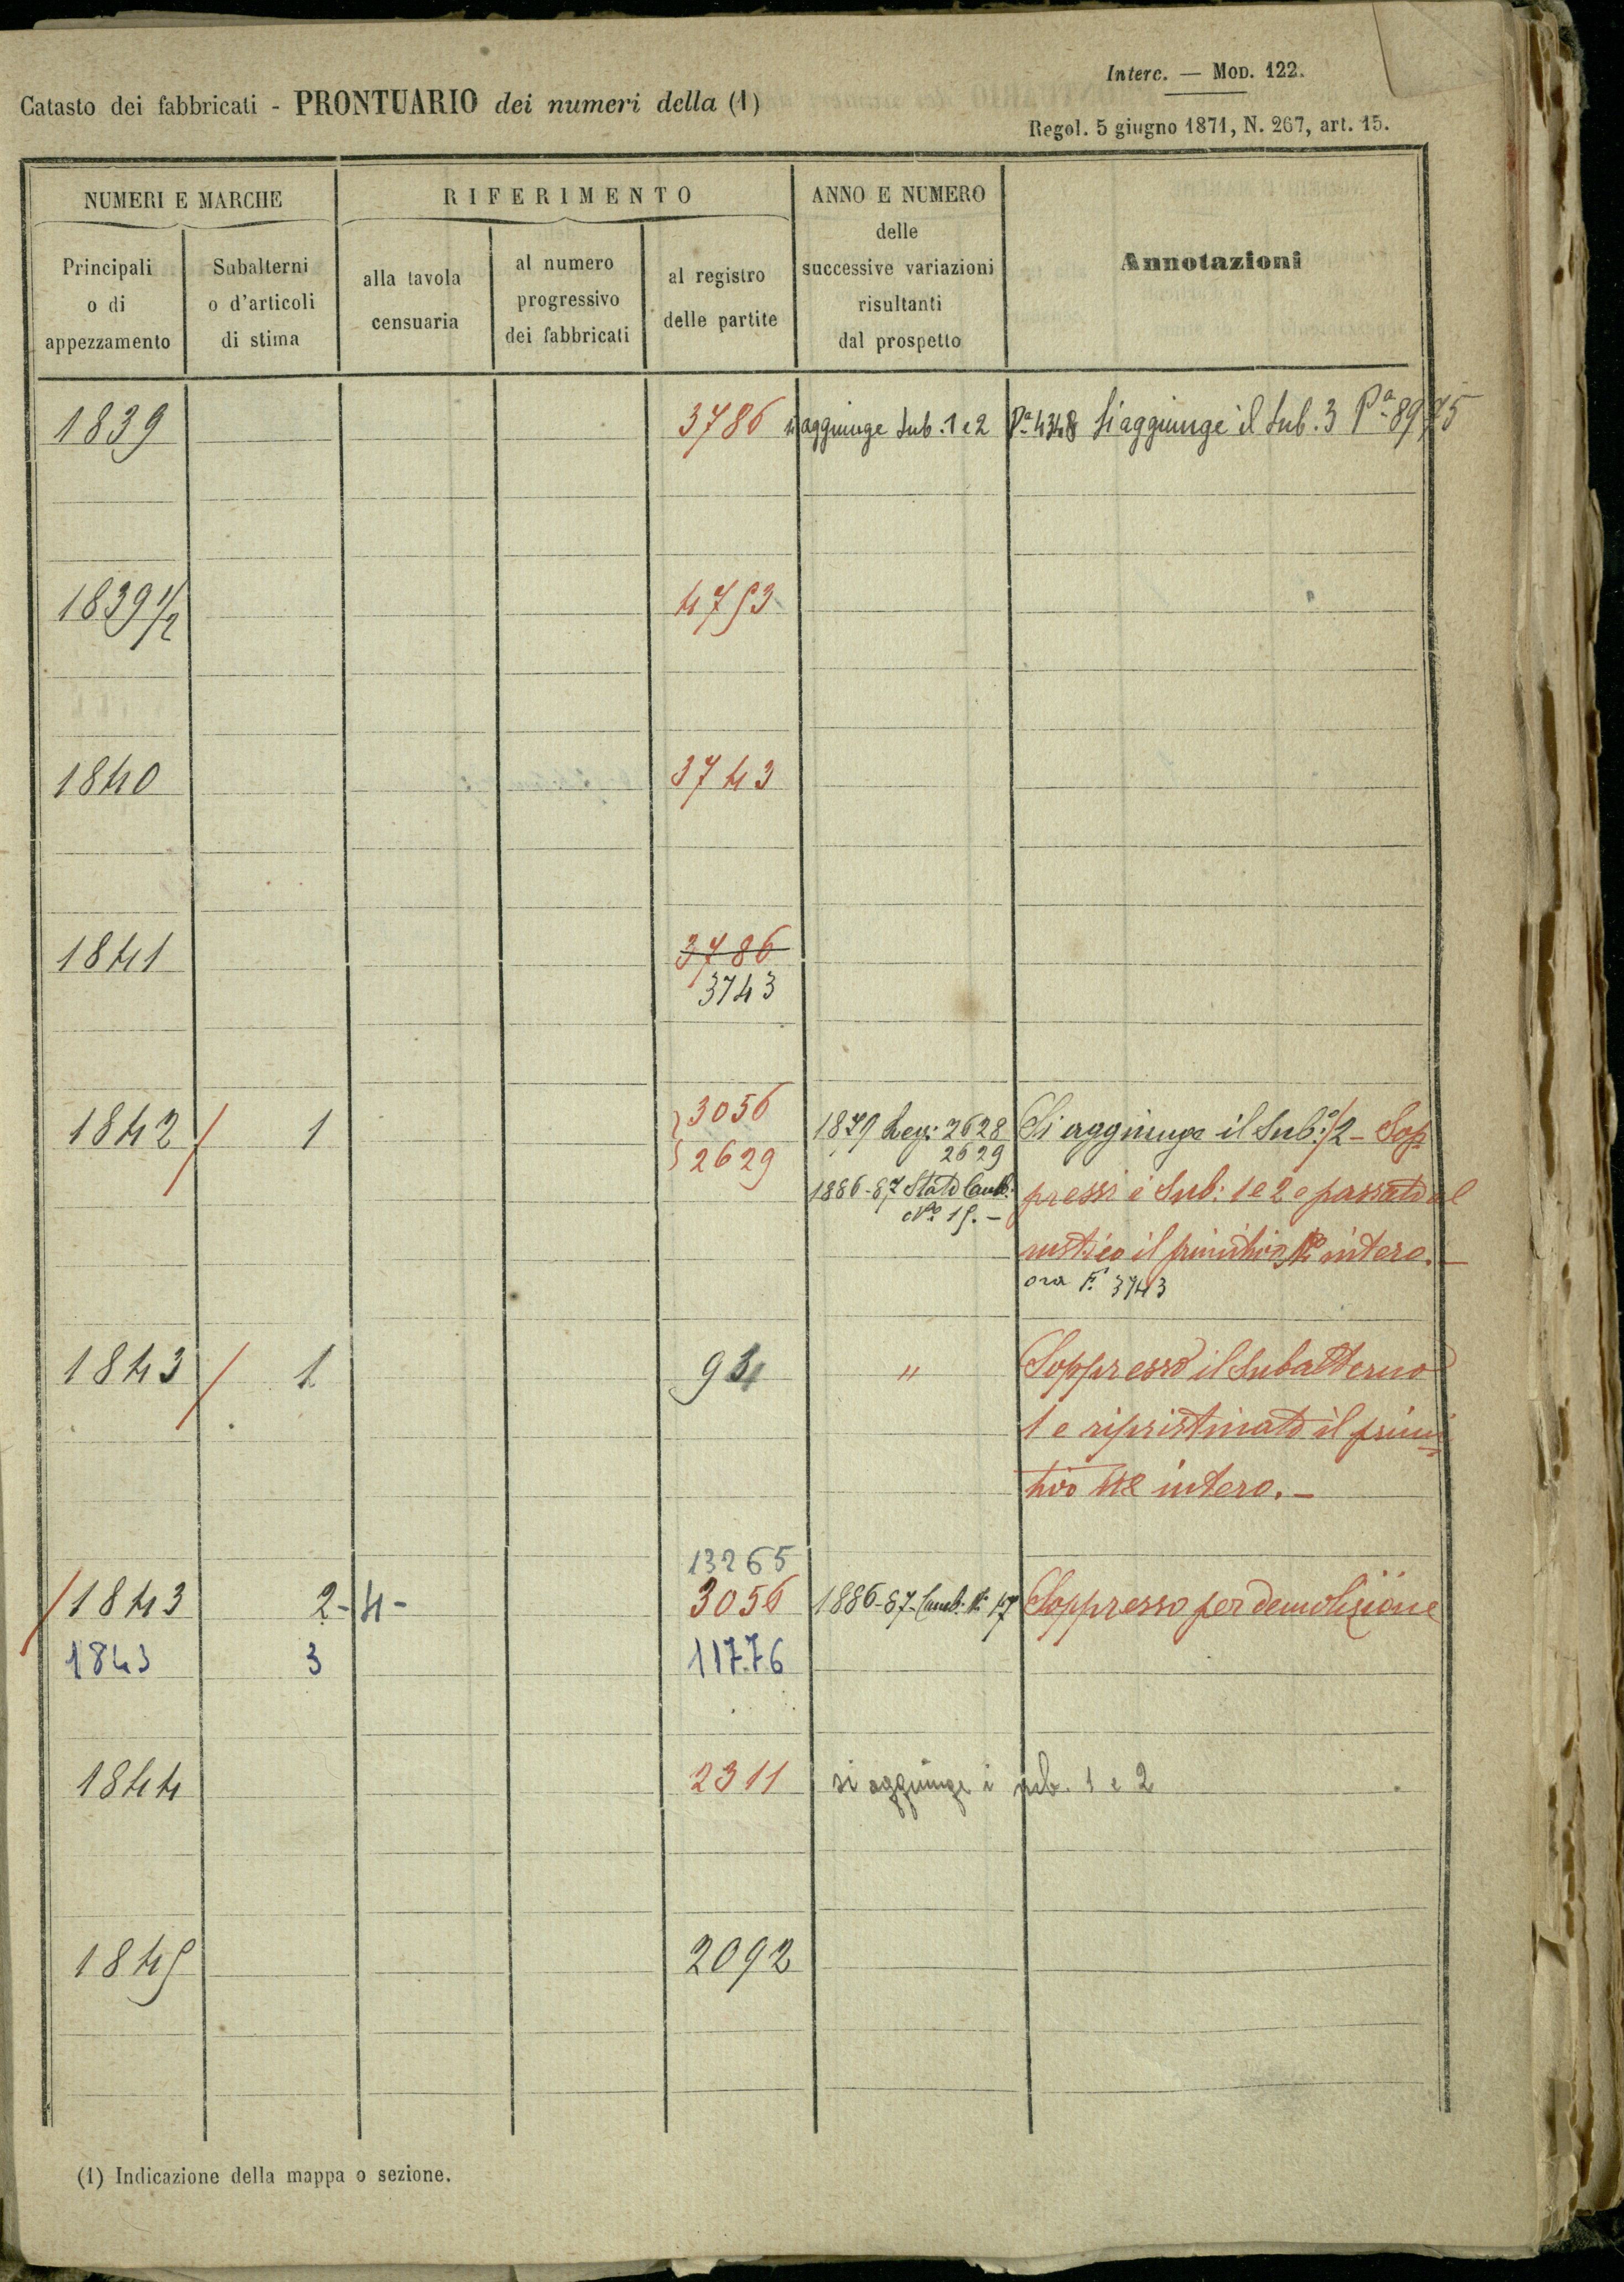 Interc. — MOD. 122.
Catasto dei fabbricati - PRONTUARIO dei numeri della (1)
Regol. 5 giugno 1871, N. 267, art. 15.
NUMERI E MARCHE
RIFERIMENTO
ANNO E NUMERO
delle
successive variazioni
risultanti
dal prospetto
Annotazioni
Principali
o di
appezzamento
Subalterni
o d'articoli
di stima
alla tavola
censuaria
al numero
progressivo
dei fabbricati
al registro
delle partite
1839 3786 si aggiunge Sub. 1 e 2 Pa 4348 Si aggiunge il Sub. 3 Pa 8975
1839 1/2 4753
1840 3743
1841 3786
3743
1842 / 1 3056 1879 Reg: 2628 Si aggiunge il Sub: /2 - Sop
2629 2629
1886-87 Stato Camb: pressi i Sub: 1 e 2 e passato al
No 15. -
rustico il primitivo No intero. -
ora F. 3743
1843 / 1 " Soppresso il Subalterno
1 e ripristinato il primi
tivo No intero. -
13265
/ 1843 2-4- 3056 1886-87- Camb: No 17 Soppresso per demolizione
1843 3 11776
1844 2311 si aggiunge i sub. 1 e 2
1845 2092
(1) Indicazione della mappa o sezione.